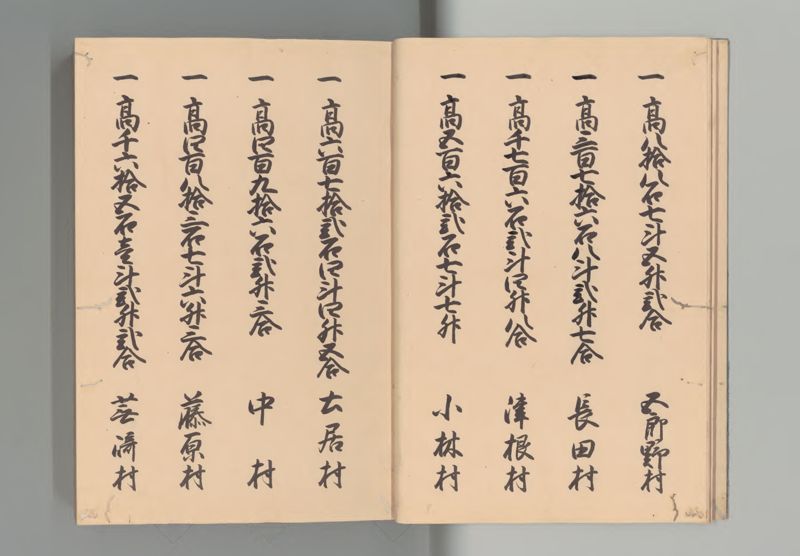 一 高八拾八石七斗五升弐合 五郎野村
一 高三百七拾六石八斗弐升七合 長田村
一 高千七百六石弐斗四升八合 津根村
一 高五百六拾弐石七斗七升 小林村
一 高六百七拾弐石四斗四升五合 土居村
一 高四百九拾六石弐升三合 中村
一 高四百八拾三石七斗六升三合 藤原村
一 高千六拾五石壱斗弐升弐合 蕪崎村